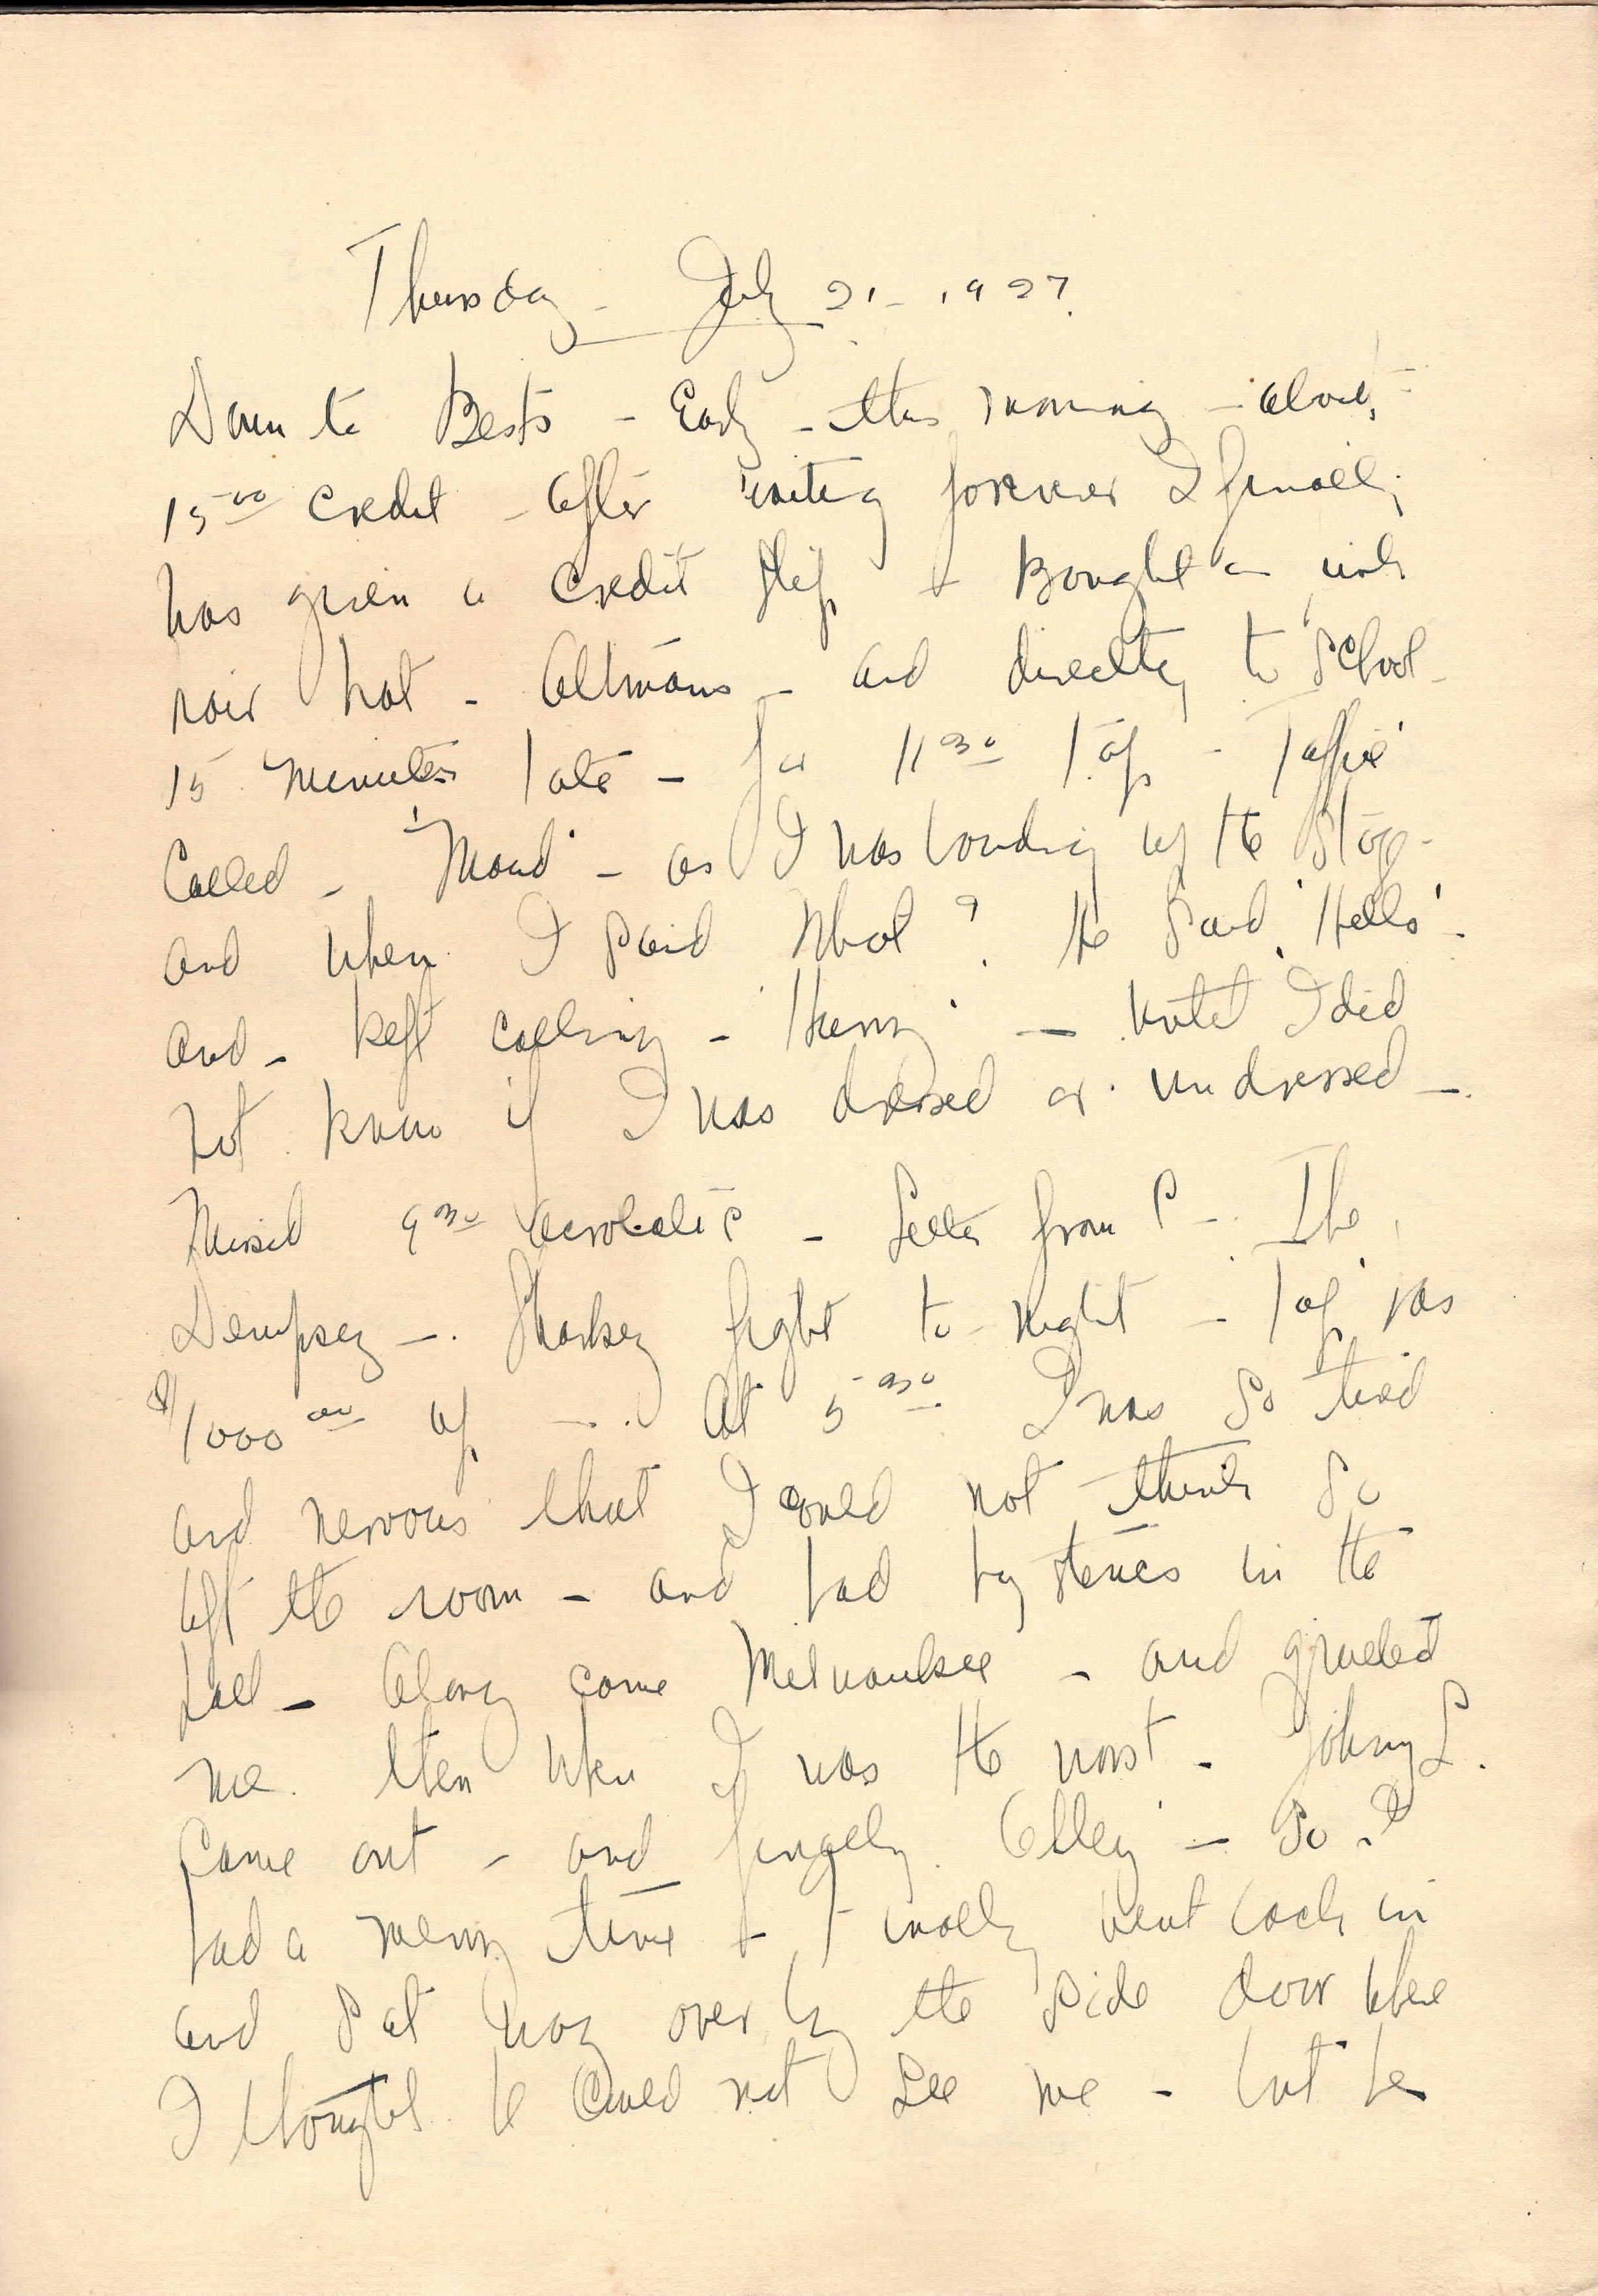 Thursday - July 21 - 1927.
Down to Bests - Early - this morning - about
15 00 credit - after waiting forever I finally
was given a credit slip + Bought a
noir hat - Altmans - and directly to School -
15 Minutes late - for 11 30 Tap - Taffie
Called - 'Maud' - as I was bounding up the Steps -
and when I said What? He Said 'Hello' -
and - kept calling - 'Henry' - until I did
not know if I was dressed or undressed -
Missed 9 30 acrobatic - Letter from P - The
Dempsey - Sharkey fight to-night - Tap was
$1000 00 up - . At 5 30 I was So tired
and nervous that I could not think So
left the room - and had hysterics in the
hall - Along came Milwaukee - and
me. then when I was the worst - Johnny L.
Came out - and finally - So I
had a merry time + finally went back in
and Sat way over by the side door where
I thought he could not See me - but he